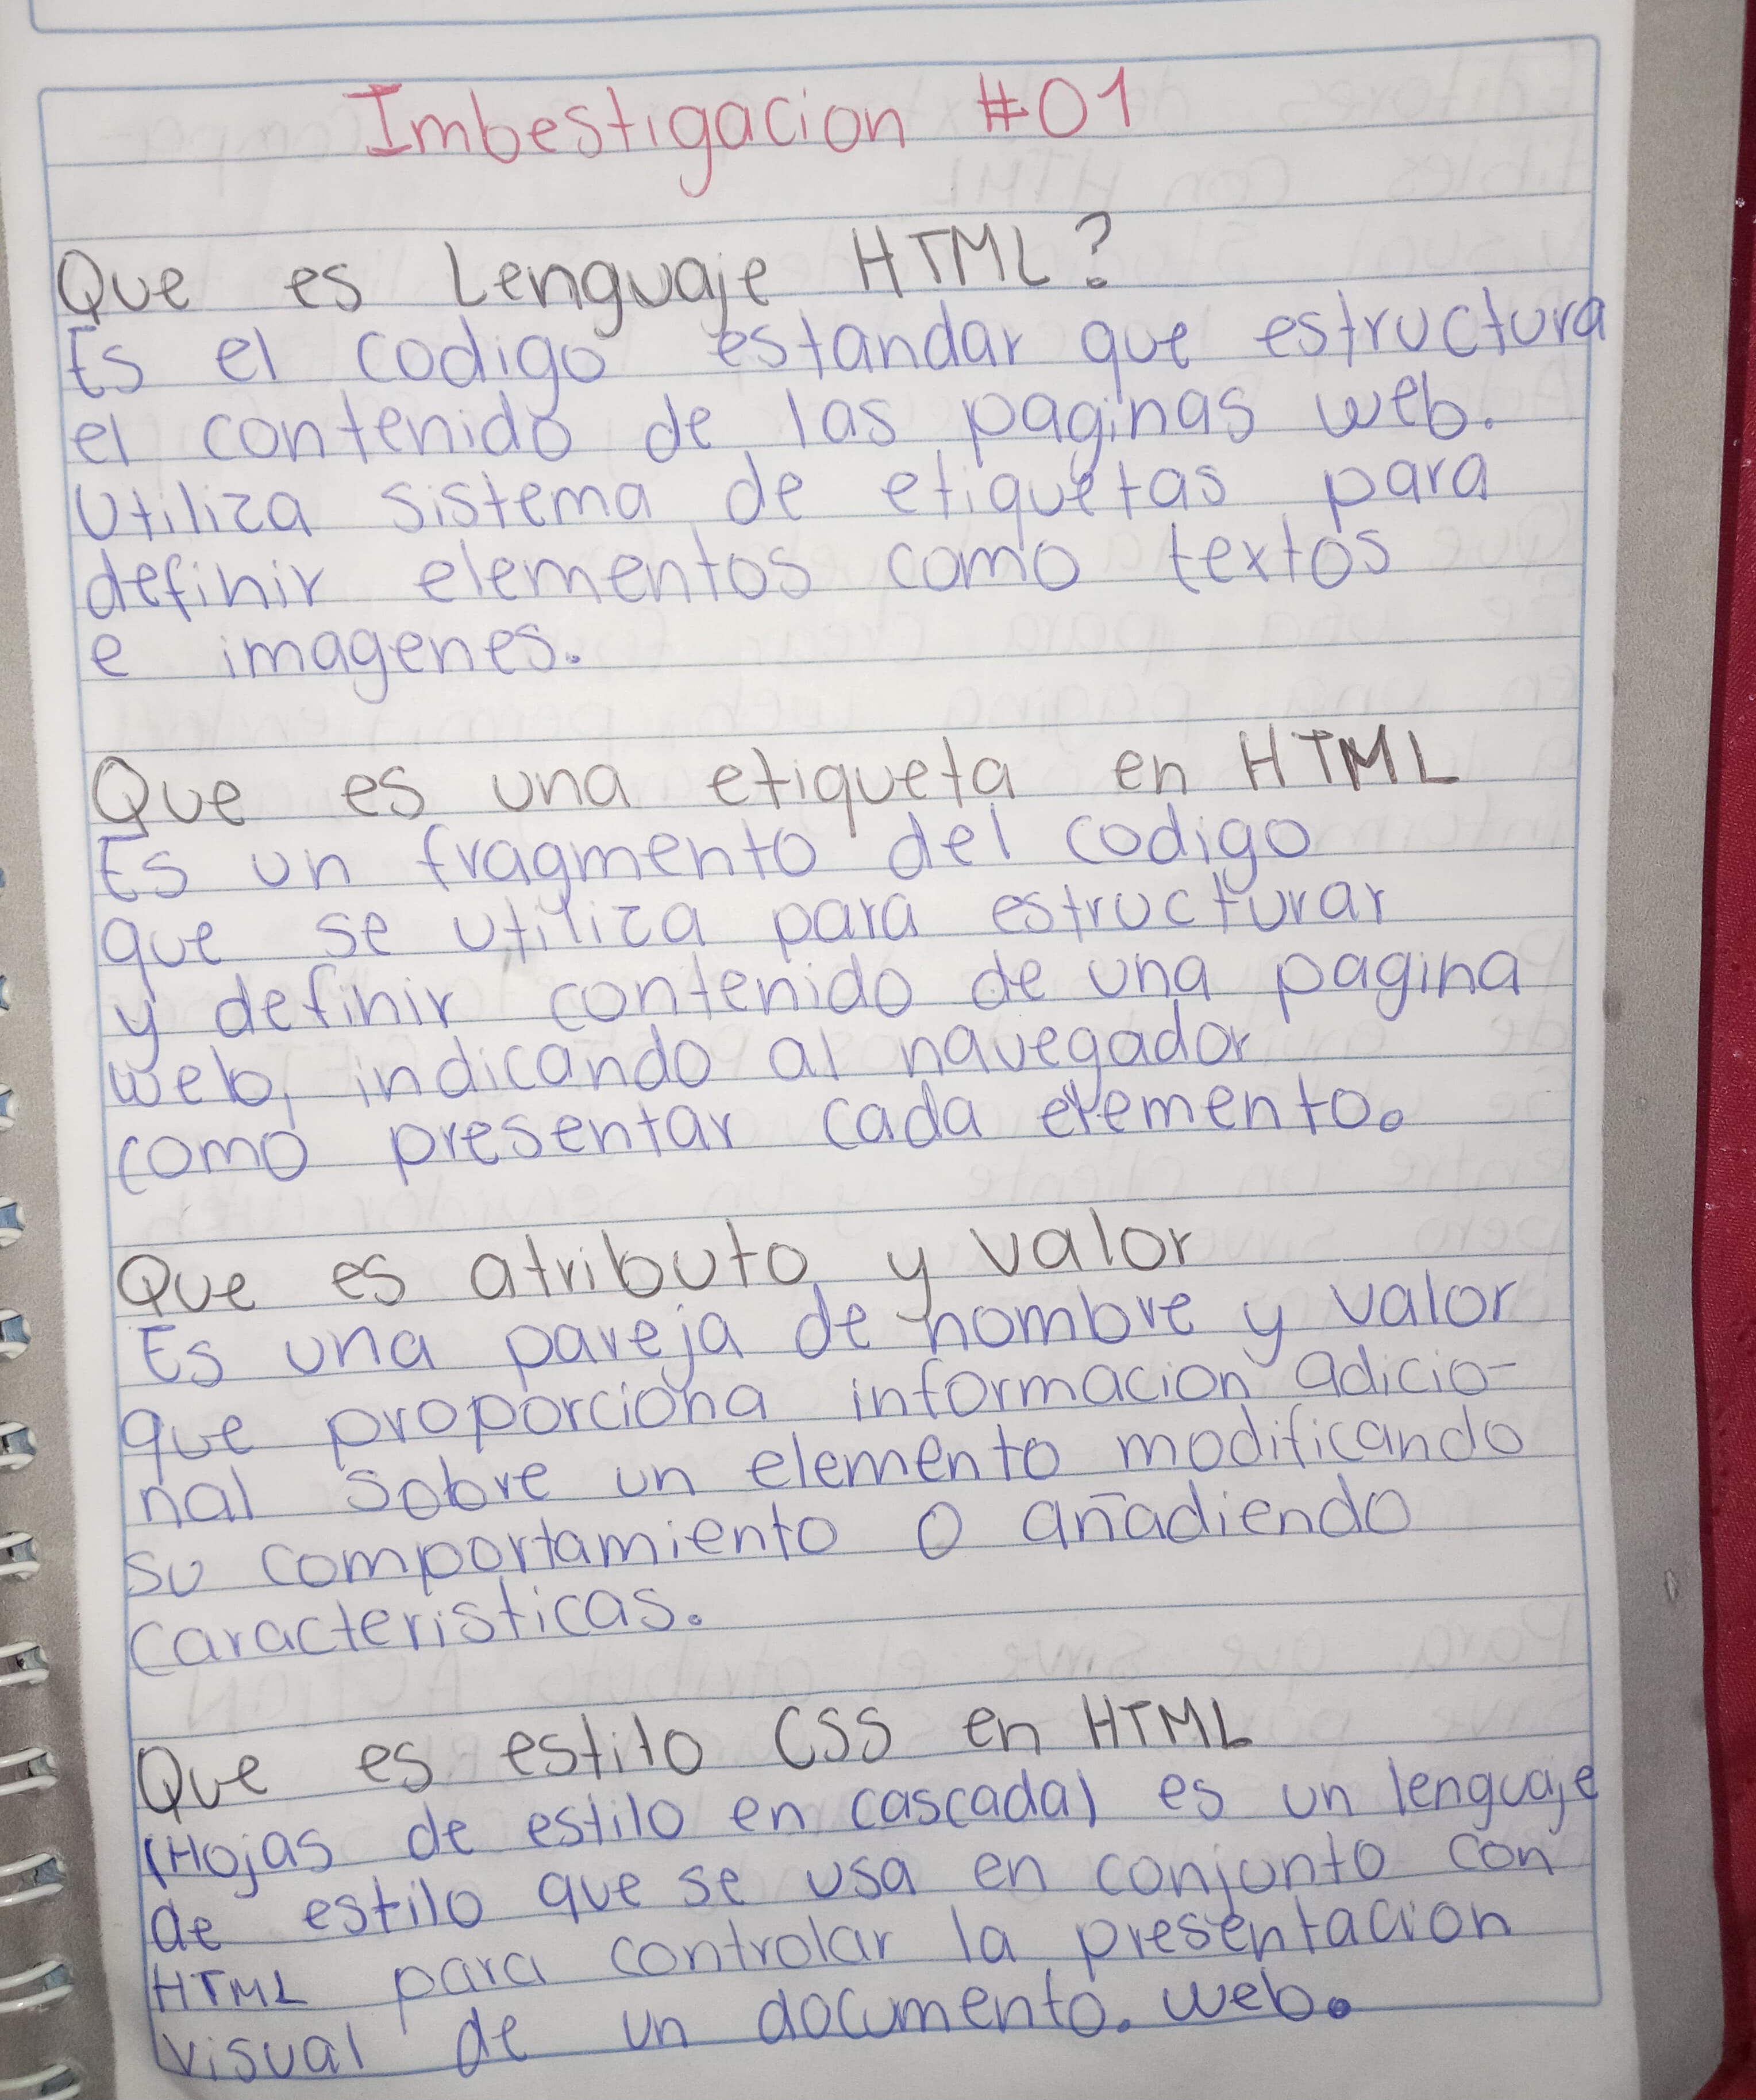 Imbestigacion #01
Que es Lenguaje HTML?
Es el codigo estandar que estructura
el contenido de las paginas web.
Utiliza sistema de etiquetas para
definir elementos como textos
e imagenes.
Que es una etiqueta en HTML
Es un fragmento del codigo
que se utiliza para estructurar
y definir contenido de una pagina
web, indicando al navegador
como presentar cada elemento.
Que es atributo y valor
Es una pareja de nombre y valor
que proporciona informacion adicio-
nal sobre un elemento modificando
su comportamiento o añadiendo
caracteristicas.
Que es estilo CSS en HTML
(Hojas de estilo en cascada) es un lenguaje
de estilo que se usa en conjunto con
HTML para controlar la presentacion
visual de un documento. web.